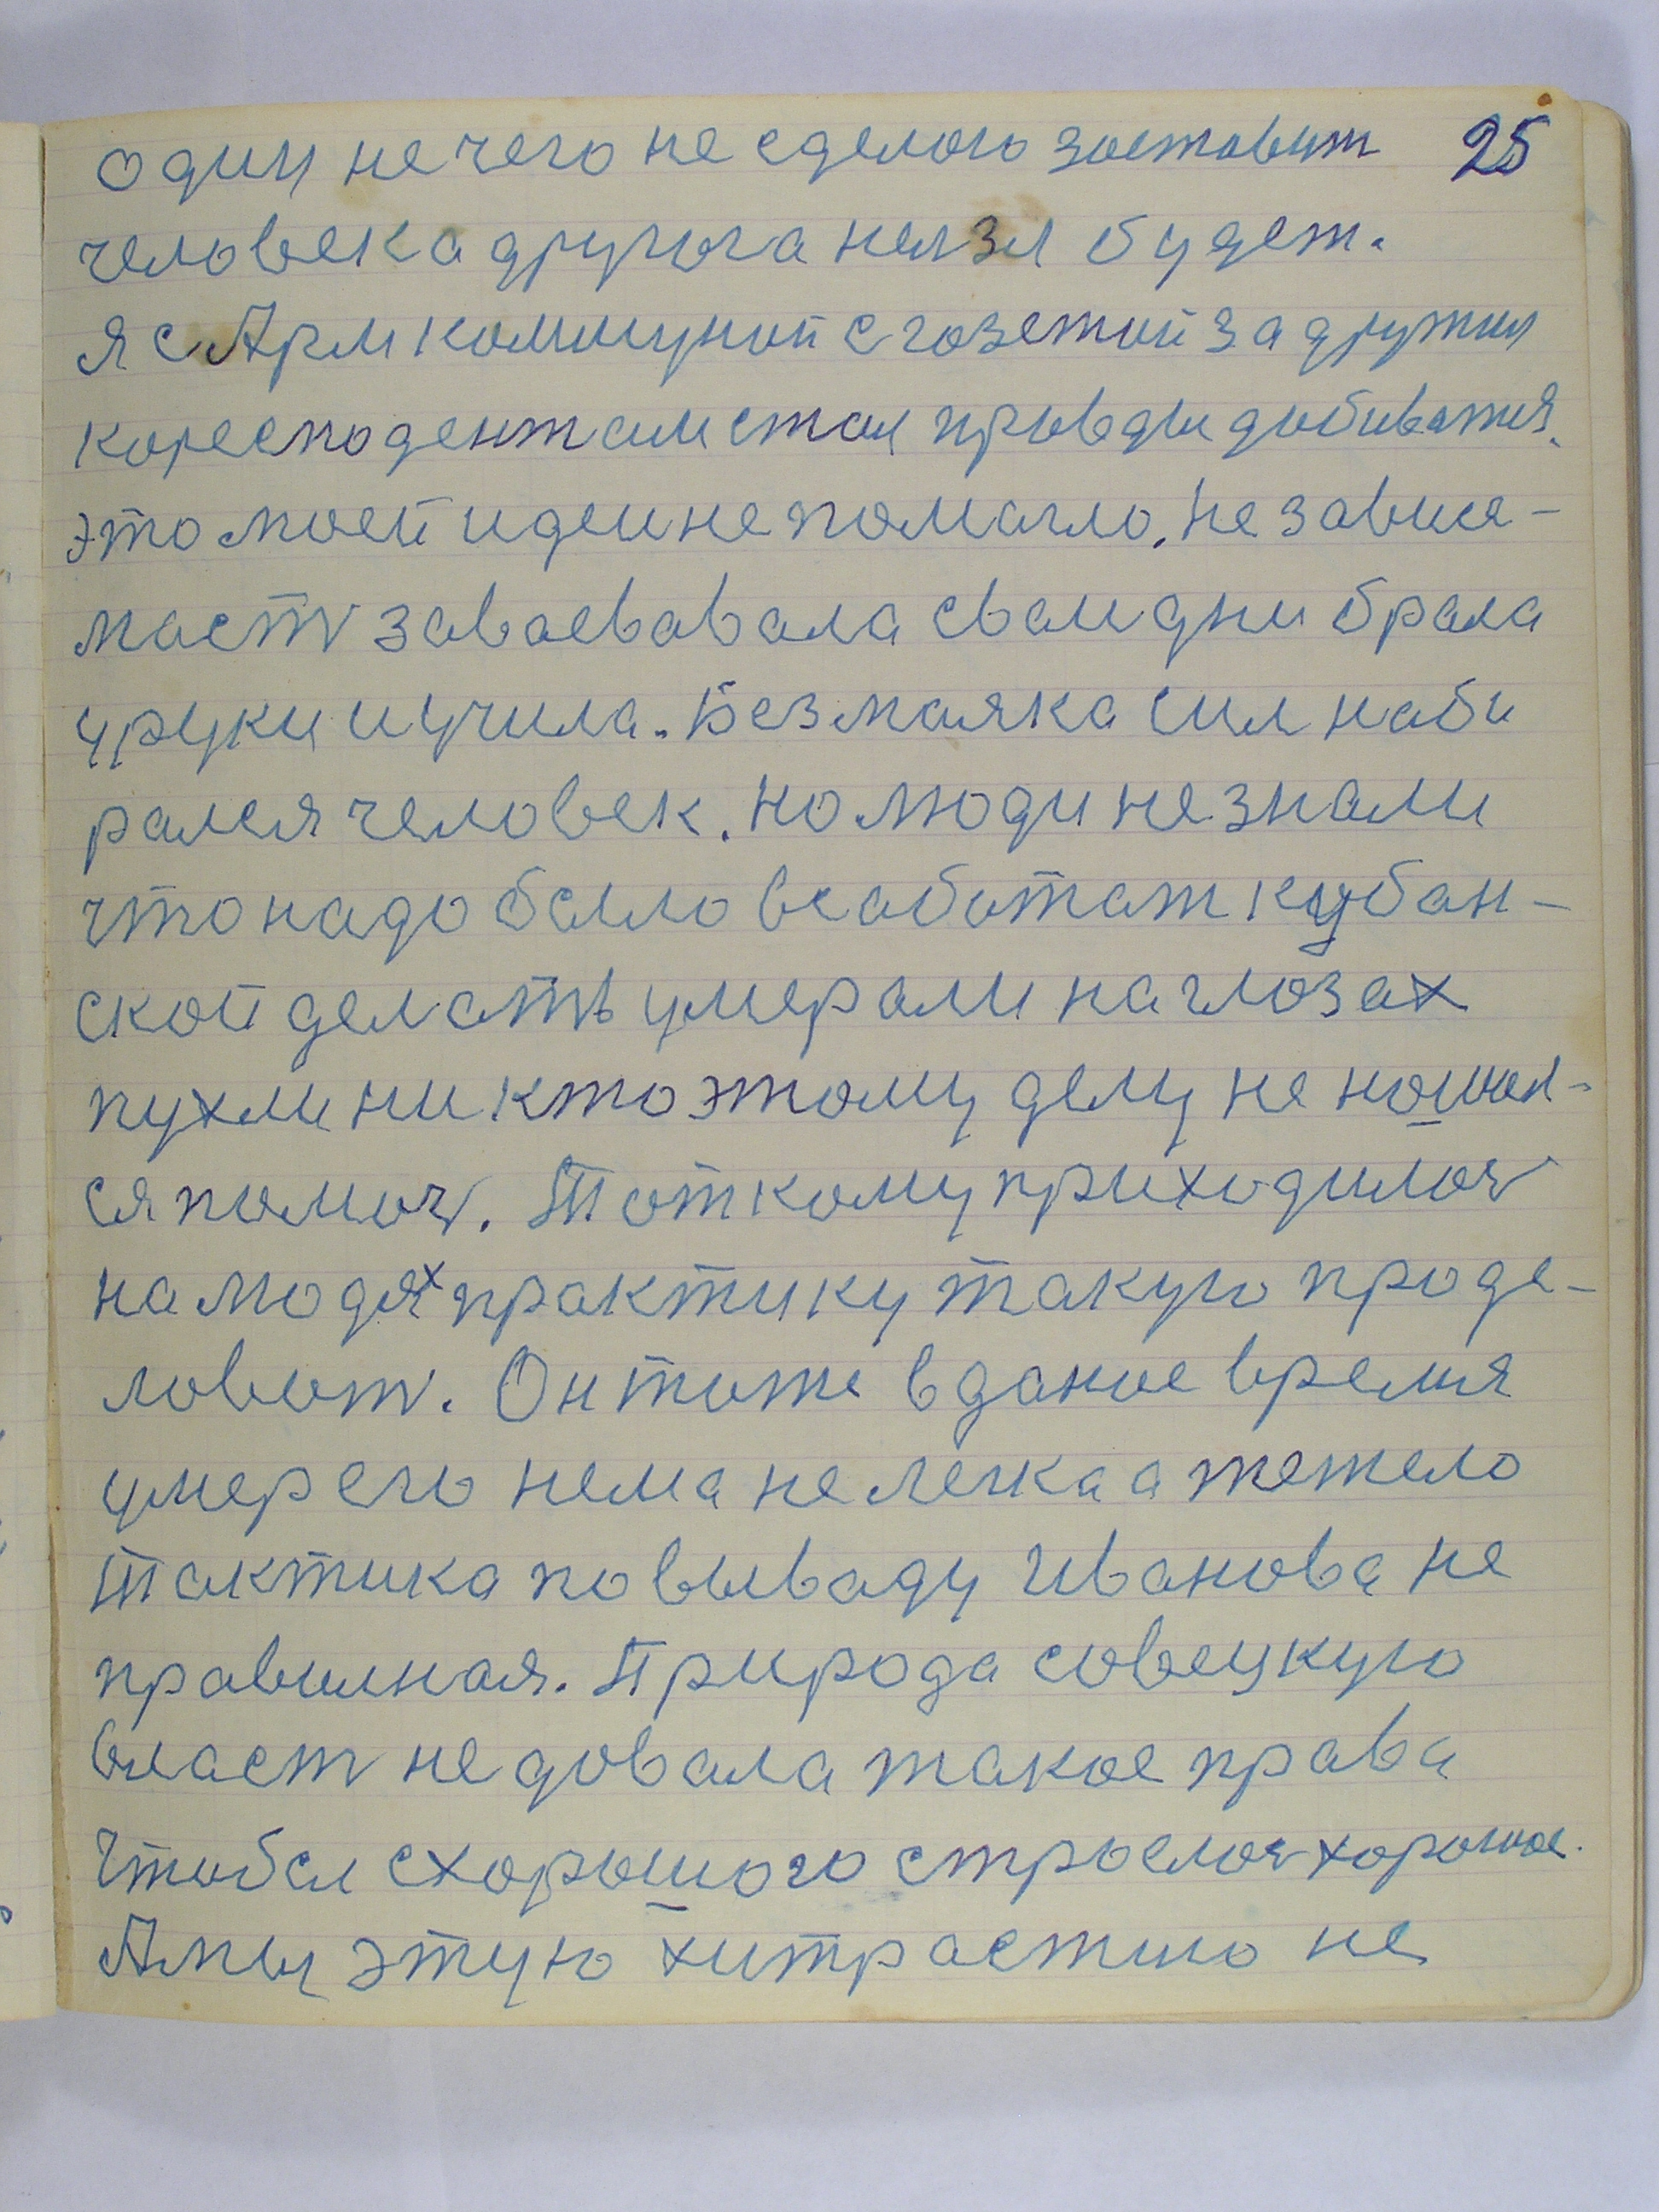 один нечего не сделого зоставит 25
человека другога нелзя будет.
Я с Арм коммуной с гозетой задружил
коресподентам стал правды добиватия.
это моей идеи не помагло. Независя-
масть заваевавала сваи дни брала
уруки и учила. Без маяка сил наби
рался человек. Но люди не знали
что надо было всаботат кубан-
ской делать умерали на глозах
пухли ни кто этому делу не нашол-
ся помоч. Тот кому приходилось
на людях практику такую проде-
ловоть. Он тоже в даное время
умер его нема не легка а тежело
Тактика по вываду Иванова не
правилная. Природа совецкую
власть не довала такое права
Чтобы схорошого строелось хорошое.
А мы этую хитрастию не